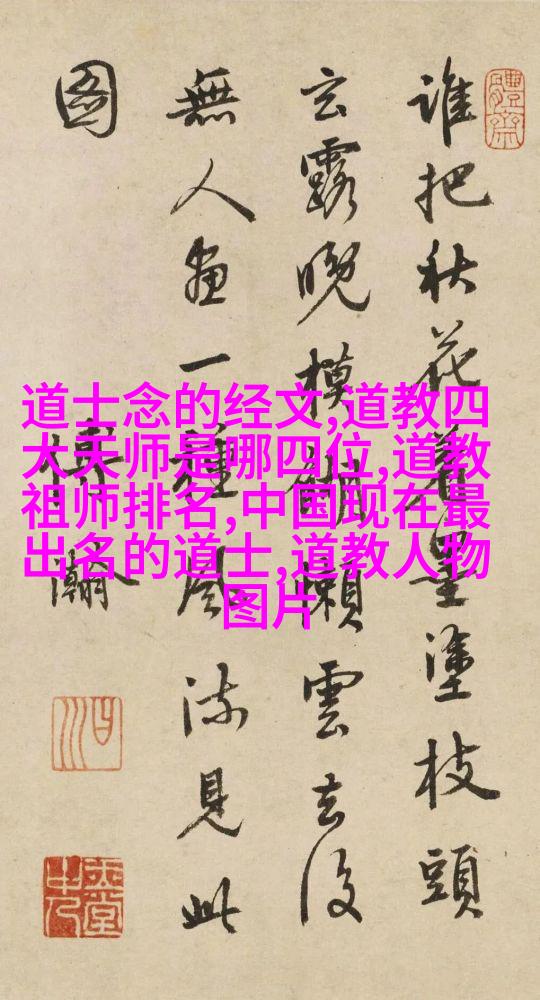 道士念的经文,道教四
大天师是哪四位,道教
祖师排名,中国现在最
出名的道士,道教人物
图片
誰把秋花着墨塗枝頭
玄露晚模糊懶雲去後
無人畫一種風流見此
圖